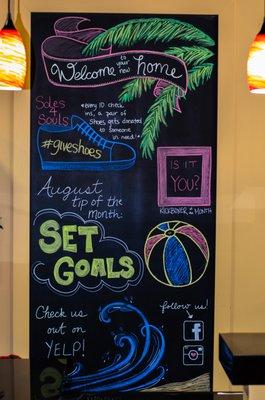 Welcome to your new home
Soles
4
Souls
*every 10 check
ins, a pair of
shoes gets donated
to someone
in need
#giveshoes
IS IT
YOU?
KICKBOXER of MONTH
August
tip of the
month:
SET
GOALS
Check us
out on
YELP!
follow us!
f